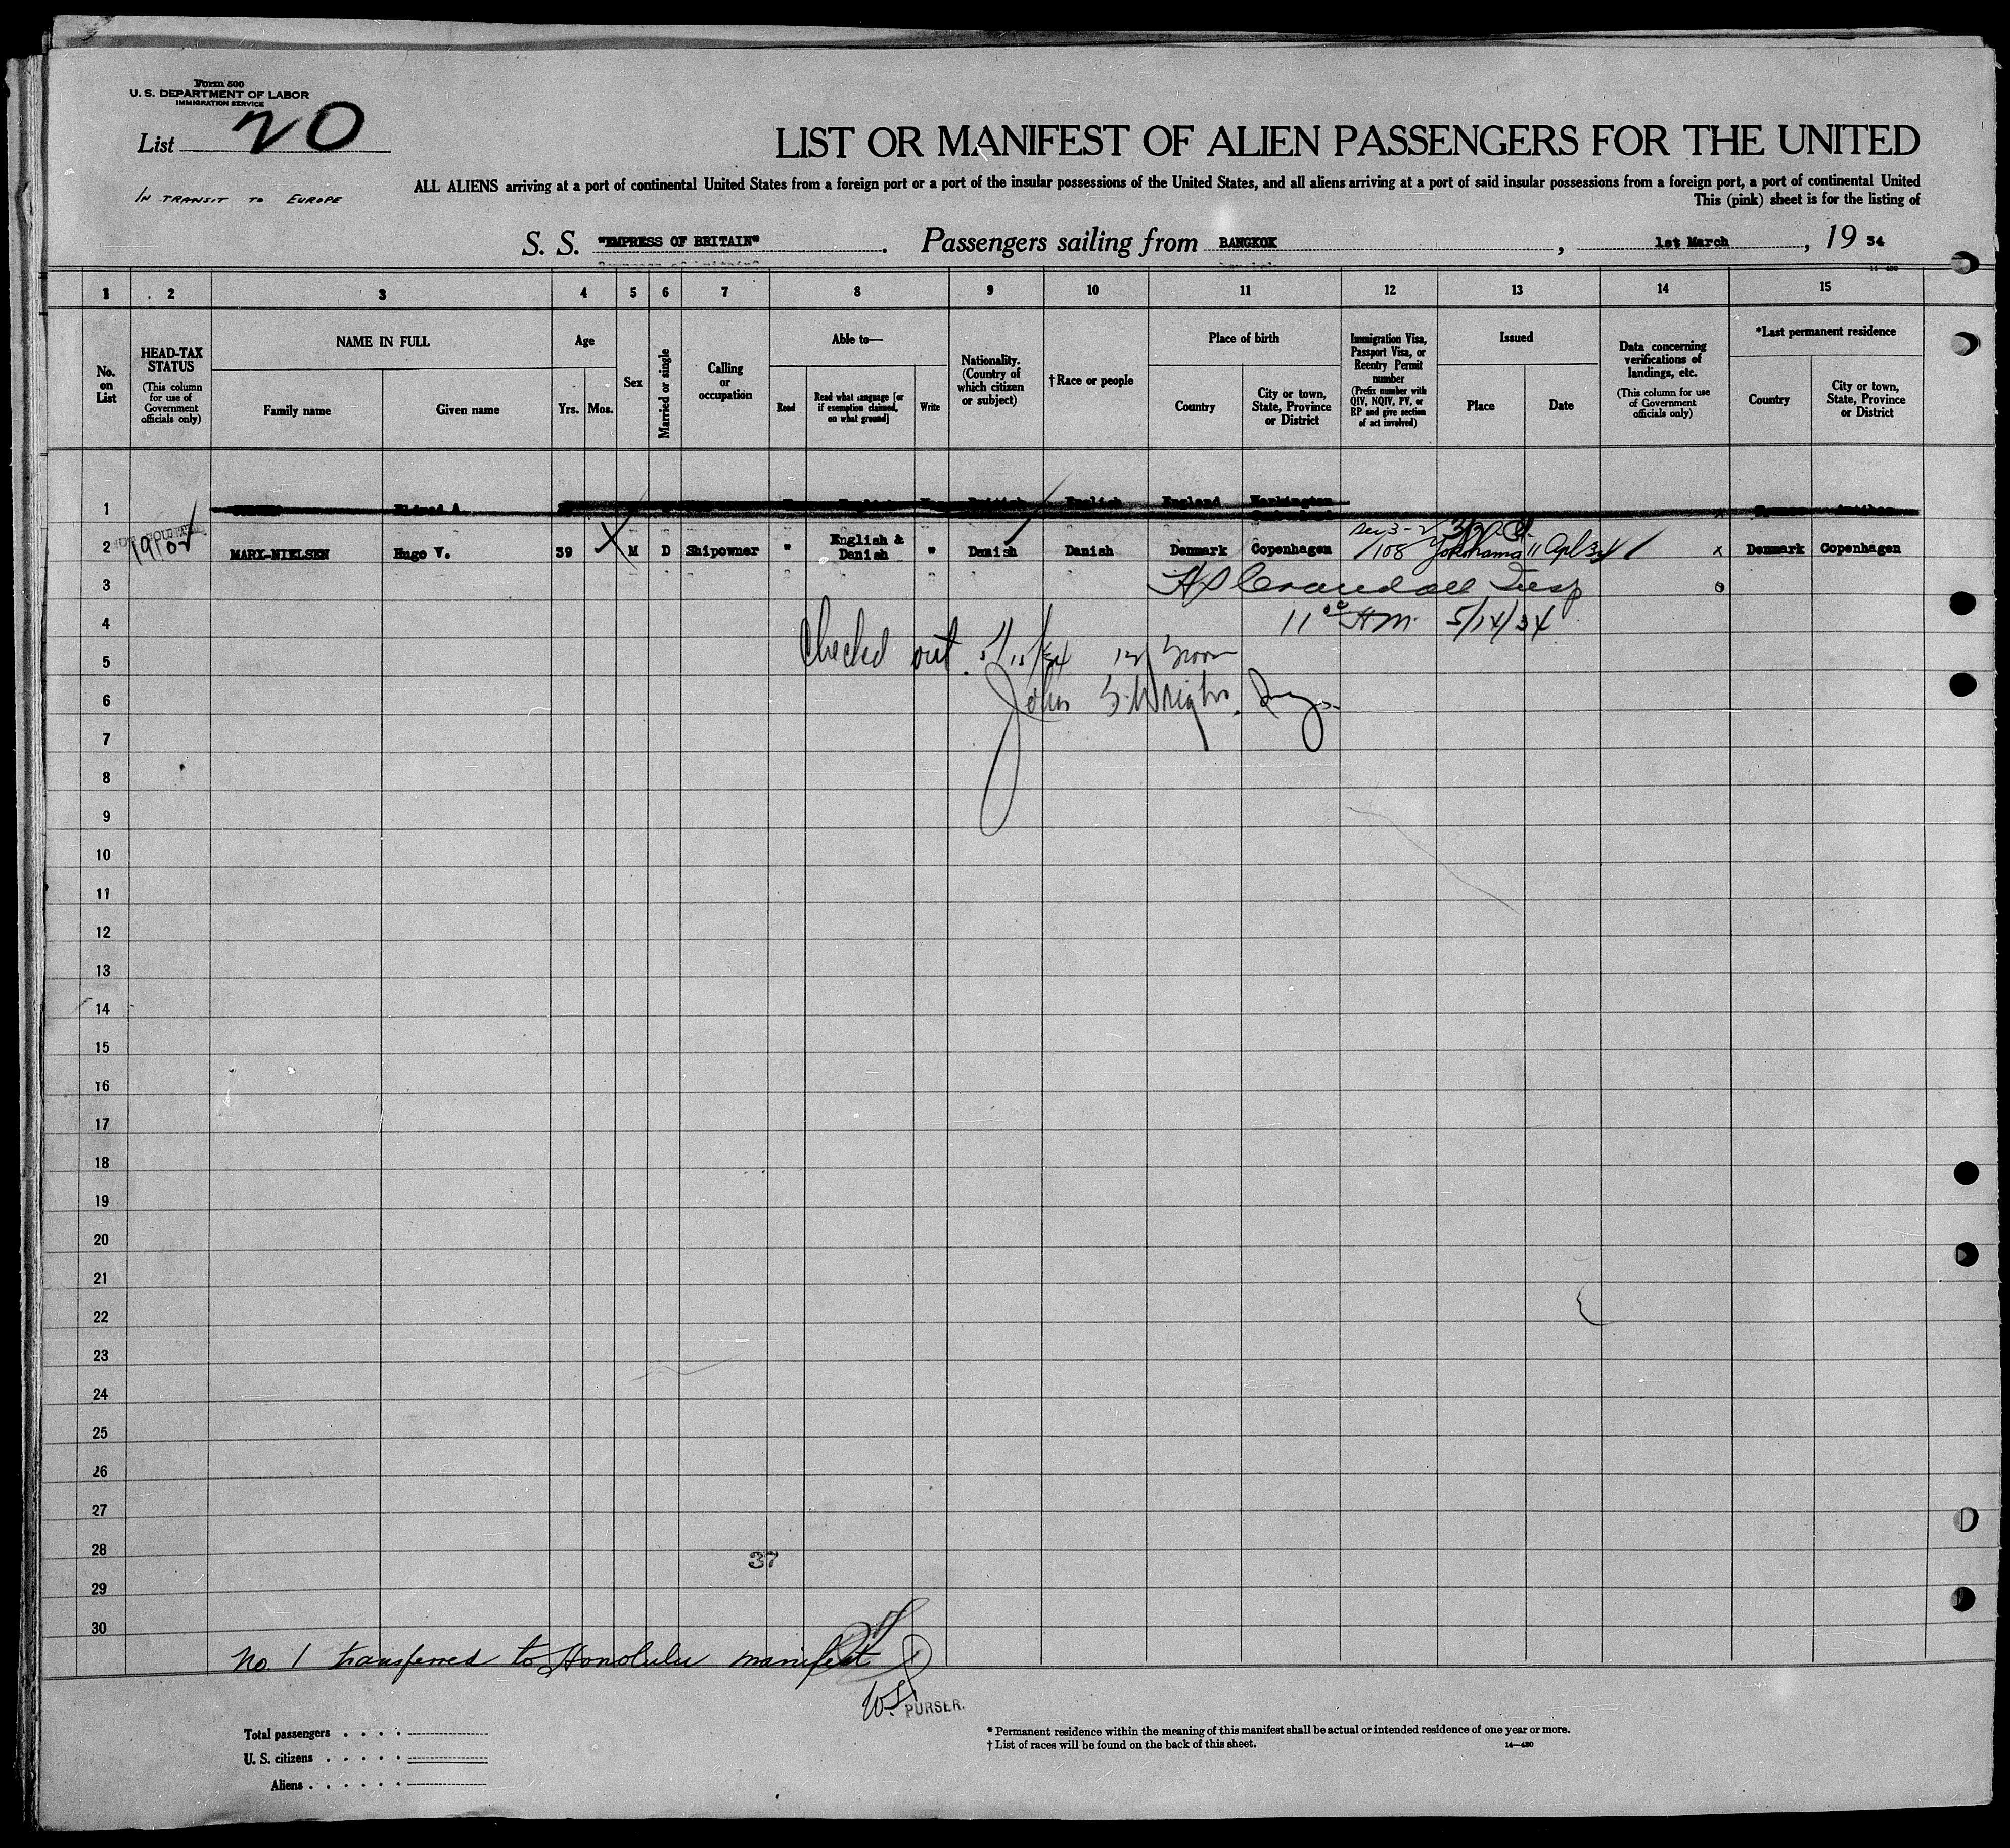 Form 500
U. S. DEPARTMENT OF LABOR
IMMIGRATION SERVICE
List 20
LIST OR MANIFEST OF ALIEN PASSENGERS FOR THE UNITED
IN TRANSIT TO EUROPE
ALL ALIENS arriving at a port of continental United States from a foreign port or a port of the insular possessions of the United States, and all aliens arriving at a port of said insular possessions from a foreign port, a port of continental United
This (pink) sheet is for the listing of
S. S. "EMPRESS OF BRITAIN". Passengers sailing from BANGKOK, 1st March, 19 34
1 2 3 4 5 6 7 8 9 10 11 12 13 14 15
No. on List
HEAD-TAX STATUS
(This column for use of Government officials only)
NAME IN FULL
Family name Given name
Age
Yrs. Mos.
Sex
Married or single
Calling or occupation
Able to—
Read
Read what language [or if exemption claimed, on what ground]
Write
Nationality. (Country of which citizen or subject)
† Race or people
Place of birth
Country
City or town, State, Province or District
Immigration Visa, Passport Visa, or Reentry Permit number
(Prefix number with QIV, NQIV, PV, or RP and give section of act involved)
Issued
Place Date
Data concerning verifications of landings, etc.
(This column for use of Government officials only)
*Last permanent residence
Country
City or town, State, Province or District
1 Eldred A. English British English England
2 MARX-NIELSEN Hugo V. 39 M D Shipowner " English & Danish " Danish Danish Denmark Copenhagen 108 Yokohama 11 Apl 34 x Denmark Copenhagen
3 Crandall Insp
4 11 00 AM. 5/14/34
5 Checked out. 5/15/34 12 Noon
6 John Wright, Insp.
7
8
9
10
11
12
13
14
15
16
17
18
19
20
21
22
23
24
25
26
27
28
37
29
30
No. 1 transferred to Honolulu manifest
PURSER.
Total passengers . . . .
U. S. citizens . . . . .
Aliens . . . . . .
* Permanent residence within the meaning of this manifest shall be actual or intended residence of one year or more.
† List of races will be found on the back of this sheet.
14—430